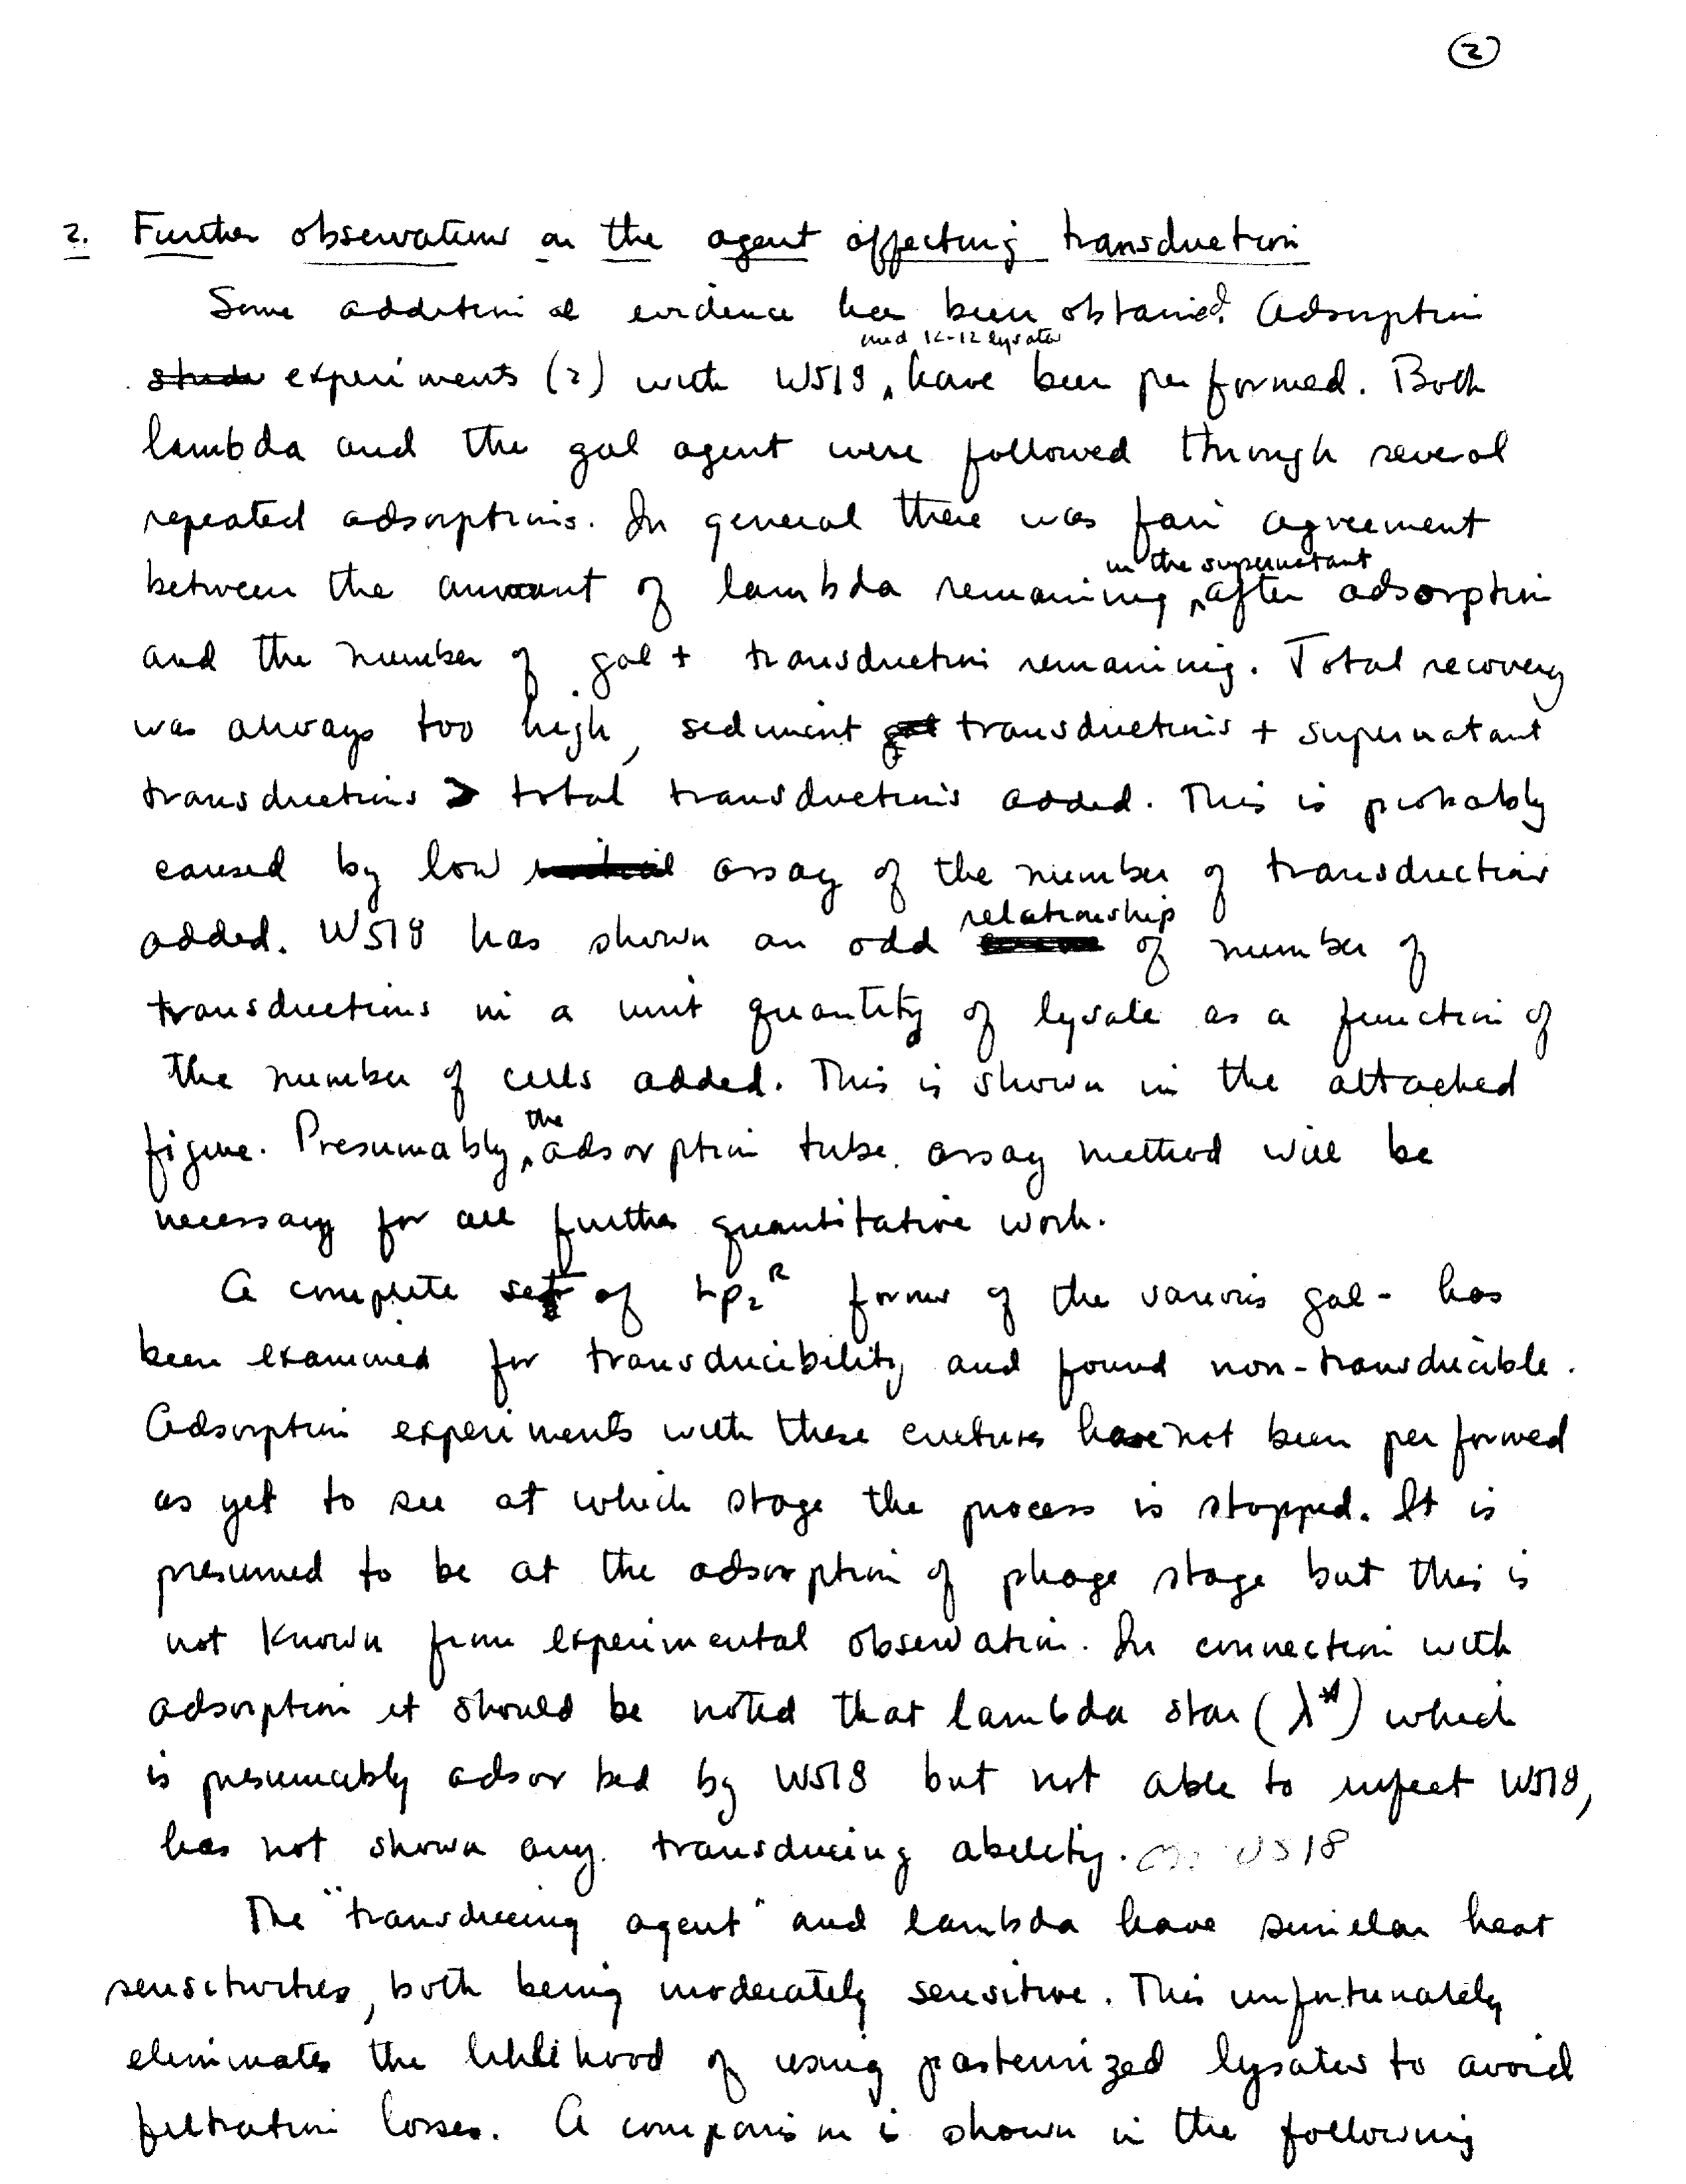 ②
2. Further observations on the agent affecting transduction
Some additional evidence has been obtained. Adsorption
and K-12 lysates
experiments (2) with W518 have been performed. Both
lambda and the gal agent were followed through several
repeated adsorptions. In general there was fair agreement
in the supernatant
between the amount of lambda remaining after adsorption
and the number of gal + transductions remaining. Total recovery
was always too high, sediment transductions + supernatant
transductions > total transductions added. This is probably
caused by low assay of the number of transductions
relationship
added. W518 has shown an odd of number of
transductions in a unit quantity of lysate as a function of
the number of cells added. This is shown in the attached
the
figure. Presumably, adsorption tube assay method will be
necessary for all further quantitative work.
A complete set of Lp₂ᴿ forms of the various gal- has
been examined for transducibility and found non-transducible.
Adsorption experiments with these cultures have not been performed
as yet to see at which stage the process is stopped. It is
presumed to be at the adsorption of phage stage but this is
not known from experimental observation. In connection with
adsorption it should be noted that lambda star (λ*) which
is presumably adsorbed by W518 but not able to infect W518,
has not shown any transducing ability. on W518
The "transducing agent" and lambda have similar heat
sensitivities, both being moderately sensitive. This unfortunately
eliminates the liklihood of using pasteurized lysates to avoid
filtration losses. A comparison is shown in the following